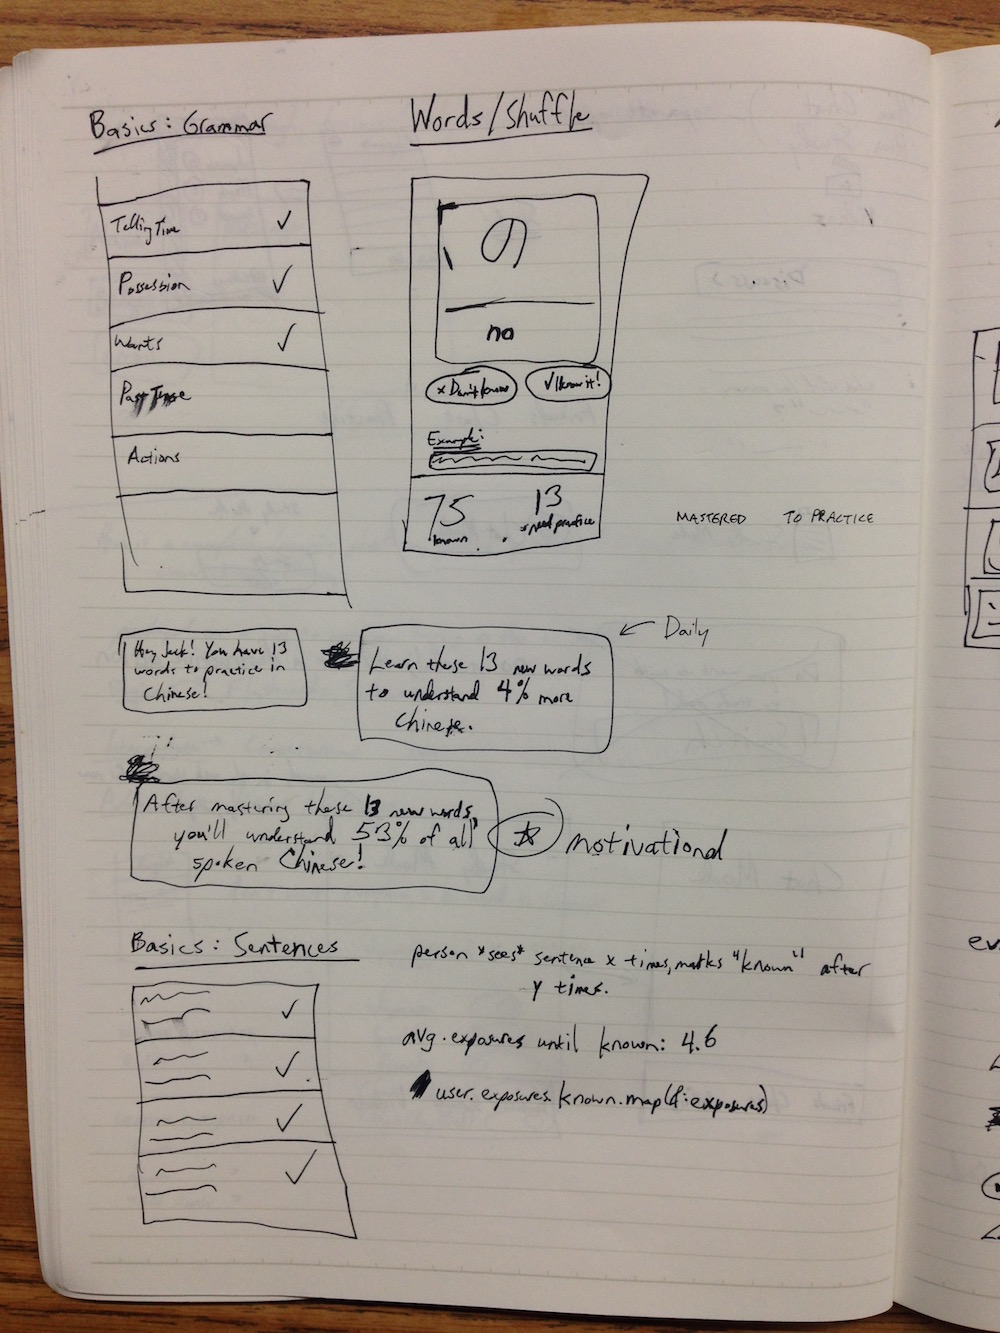 Basics: Grammar
Telling Time ✓
Possession ✓
Wants ✓
Past Tense
Actions
Words/Shuffle
の
no
x Don't know
✓ I know it!
Example:
75
known
13
need practice
MASTERED TO PRACTICE
Hey Jack! You have 13
words to practice in
Chinese!
Daily
Learn these 13 new words
to understand 4% more
Chinese.
After mastering these 13 new words,
you'll understand 53% of all
spoken Chinese!
motivational
Basics: Sentences
person *sees* sentence x times, marks "known" after
y times.
avg. exposures until known: 4.6
user.exposures.known.map(&:exposures)
ev